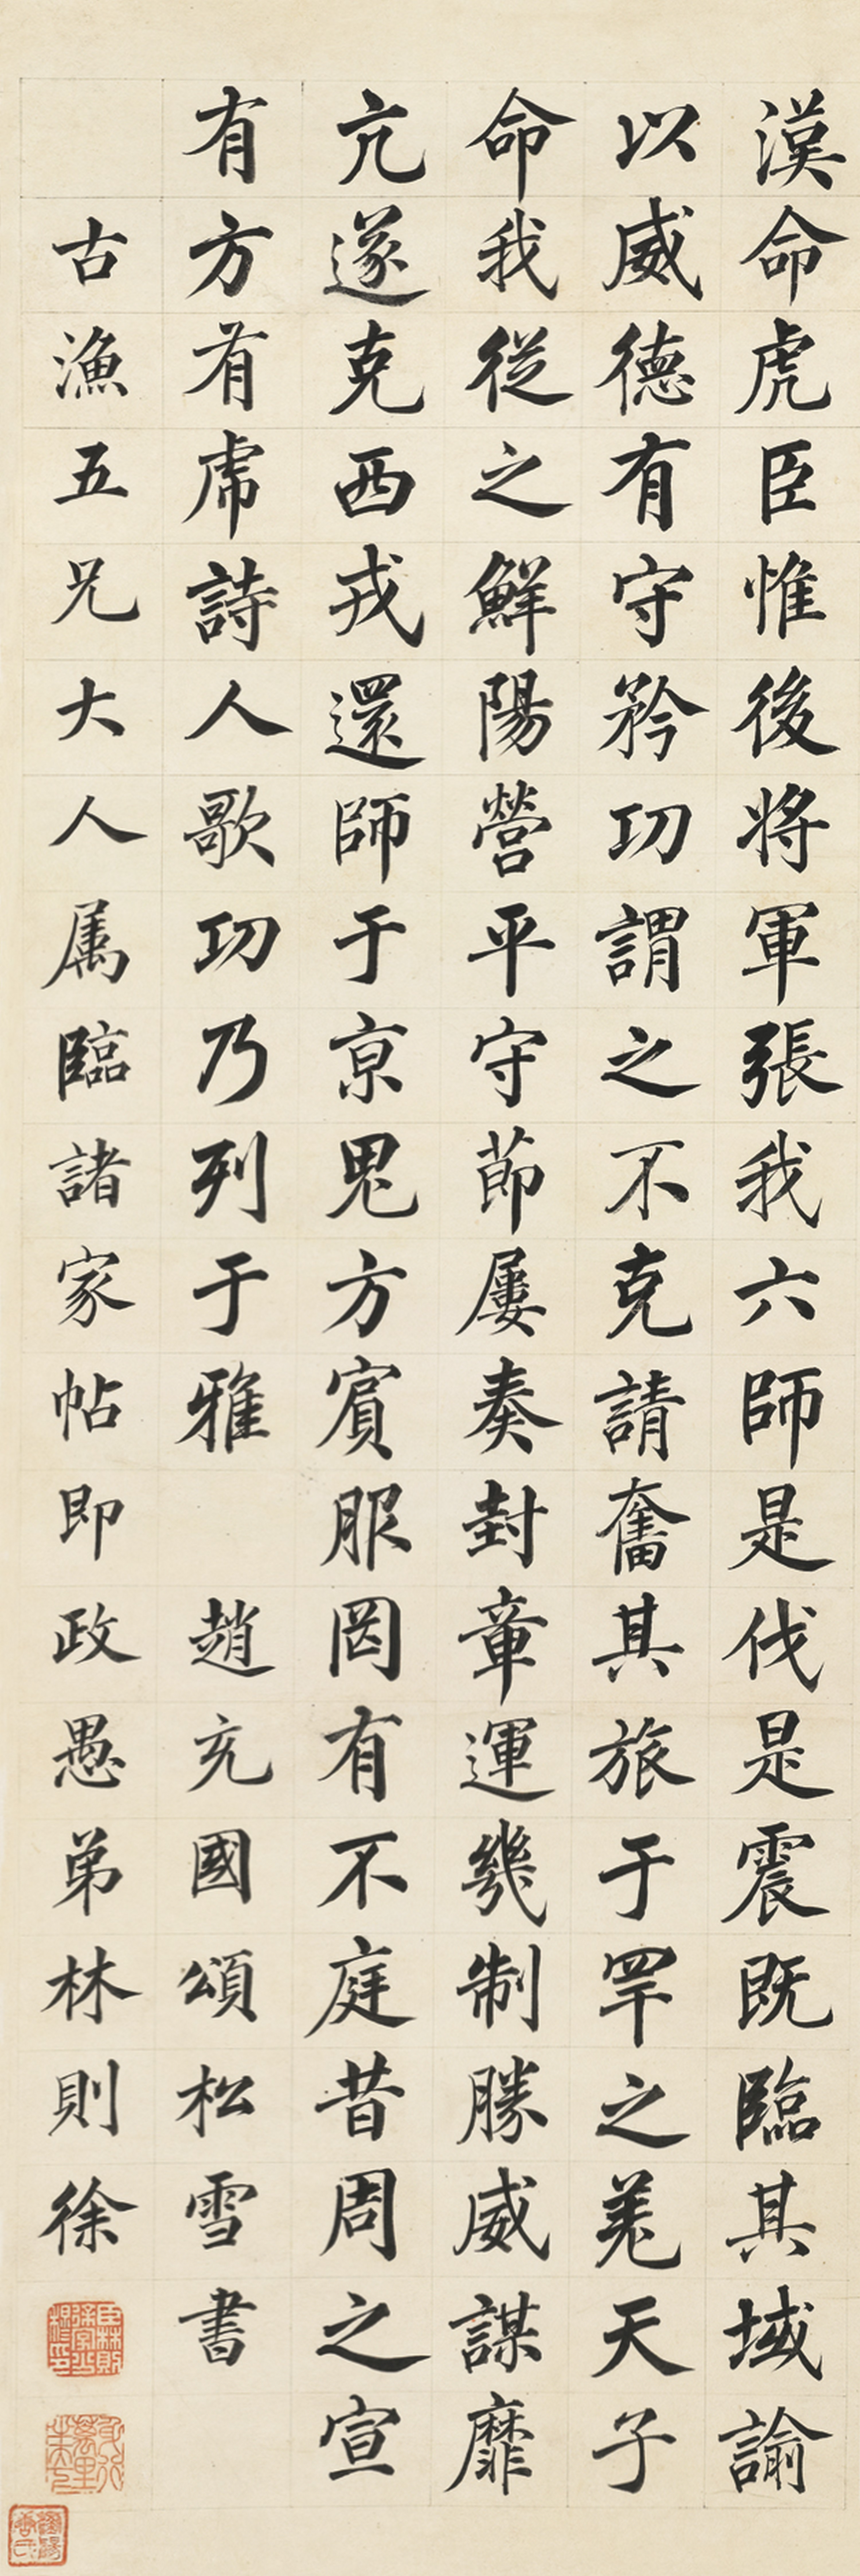 漠命虎臣惟後將軍張我六師是伐是震既臨其域諭
以威德有守矜功謂之不克請奮其旅于罕之羌天子
命我從之鮮陽營平守節屢奏封章運幾制勝威謀靡
亢遂克西戎還師于京鬼方賓服罔有不庭昔周之宣
有方有虎詩人歌功乃列于雅 趙充國頌松雪書
古漁五兄大人属臨諸家帖即政愚弟林則徐